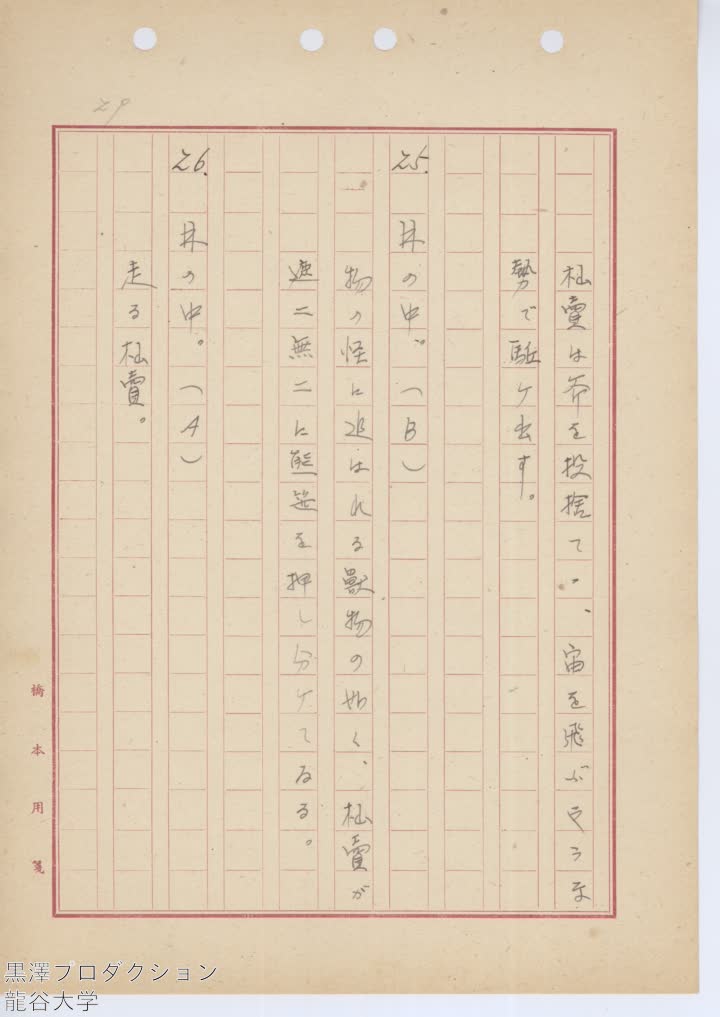 杣賣は斧を投捨てゝ、宙を飛ぶやうな
勢で駈ケ出す。
25.
林の中。(B)
物の怪に追はれる獸物の如く、杣賣が
遮二無二に熊笹を押し分ケてゐる。
26.
林の中。(A)
走る杣賣。
29
橋本用箋
黒澤プロダクション
龍谷大学